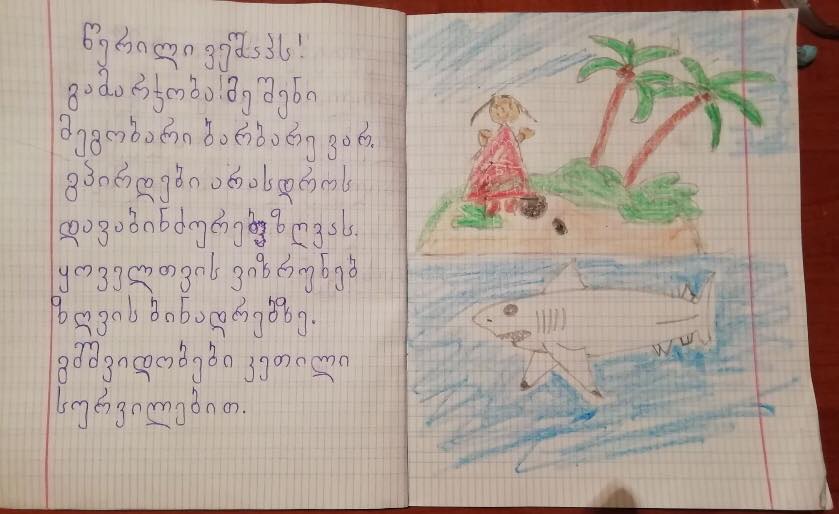 წერილი ვეშაპს!
გამარჯობა! მე შენი
მეგობარი ბარბარე ვარ.
გპირდები არასდროს
დავაბინძურებ ზღვას.
ყოველთვის ვიზრუნებ
ზღვის ბინადრებზე.
გემშვიდობები კეთილი
სურვილებით.